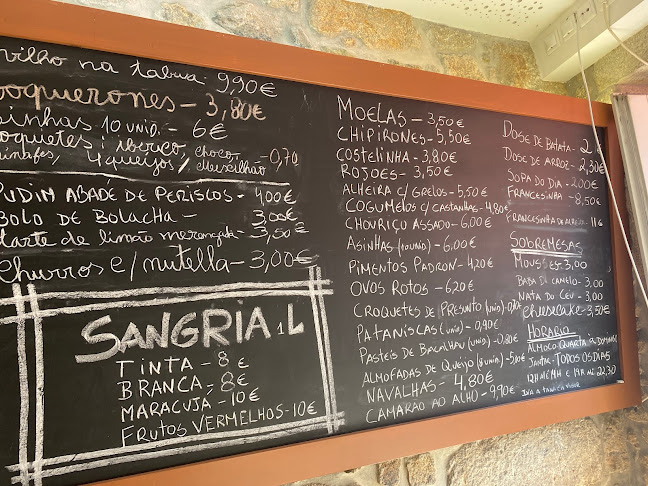 vilho na tábua - 9,90€
oquerones - 3,80€
inhas 10 unid. - 6€
oquetes: iberico, choco,
4 queijos, - 0,70
PUDIM ABADE DE PERISCOS - 4,00€
BOLO DE BOLACHA - 3,00€
tarte de limão merengada - 3,50€
Churros c/ nutella - 3,00€
SANGRIA 1L
TINTA - 8€
BRANCA - 8€
MARACUJÁ - 10€
FRUTOS VERMELHOS - 10€
MOELAS - 3,50€
CHIPIRONES - 5,50€
COSTELINHA - 3,80€
ROJOES - 3,50€
ALHEIRA C/ GRELOS - 5,50€
COGUMELOS C/ CASTANHAS - 4,80€
CHOURIÇO ASSADO - 6,00€
ASINHAS (10UNID) - 6,00€
PIMENTOS PADRON - 4,20€
OVOS ROTOS - 6,20€
CROQUETES DE PRESUNTO (UNI)
PATANISCAS (UNID) - 0,90€
PASTEIS DE BACALHAU (UNID) - 0,80€
ALMOFADAS DE QUEIJO (UNID) - 5,00€
NAVALHAS - 4,80€
CAMARÃO AO ALHO - 9,90€
DOSE DE BATATA - 2
DOSE DE ARROZ - 2,30€
SOPA DO DIA - 2,00€
FRANCESINHA - 8,50€
FRANCESINHA DE 11€
SOBREMESAS
MOUSSES - 3,00
BABA DE CAMELO - 3,00
NATA DO CÉU - 3,00
cheesecake - 3,50€
HORÁRIO
ALMOÇO QUARTA A DOMINGO
JANTAR - TODOS OS DIAS
22.30